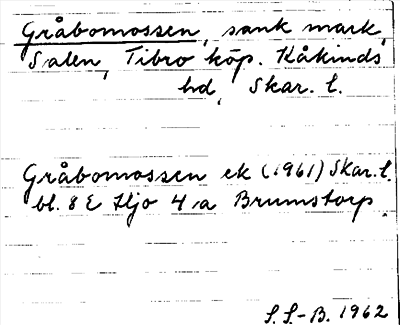 Gråbomossen, sank mark,
Salen, Tibro köp. Kåkinds
hd, Skar. l.
Gråbomossen ek (1961) Skar. l.
bl. 8 E Hjo 4 a Brumstorp.
S. S.-B. 1962